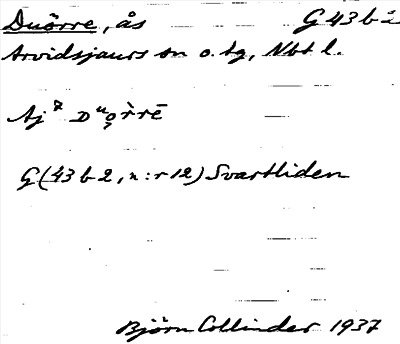 Duörre, ås G 43 b 2
Arvidsjaurs sn o. tg, Nbt l.
Aj⁷ Dᵘo̜r̀rē
G (43 b 2, n:r 12) Svartliden
Björn Collinder 1937